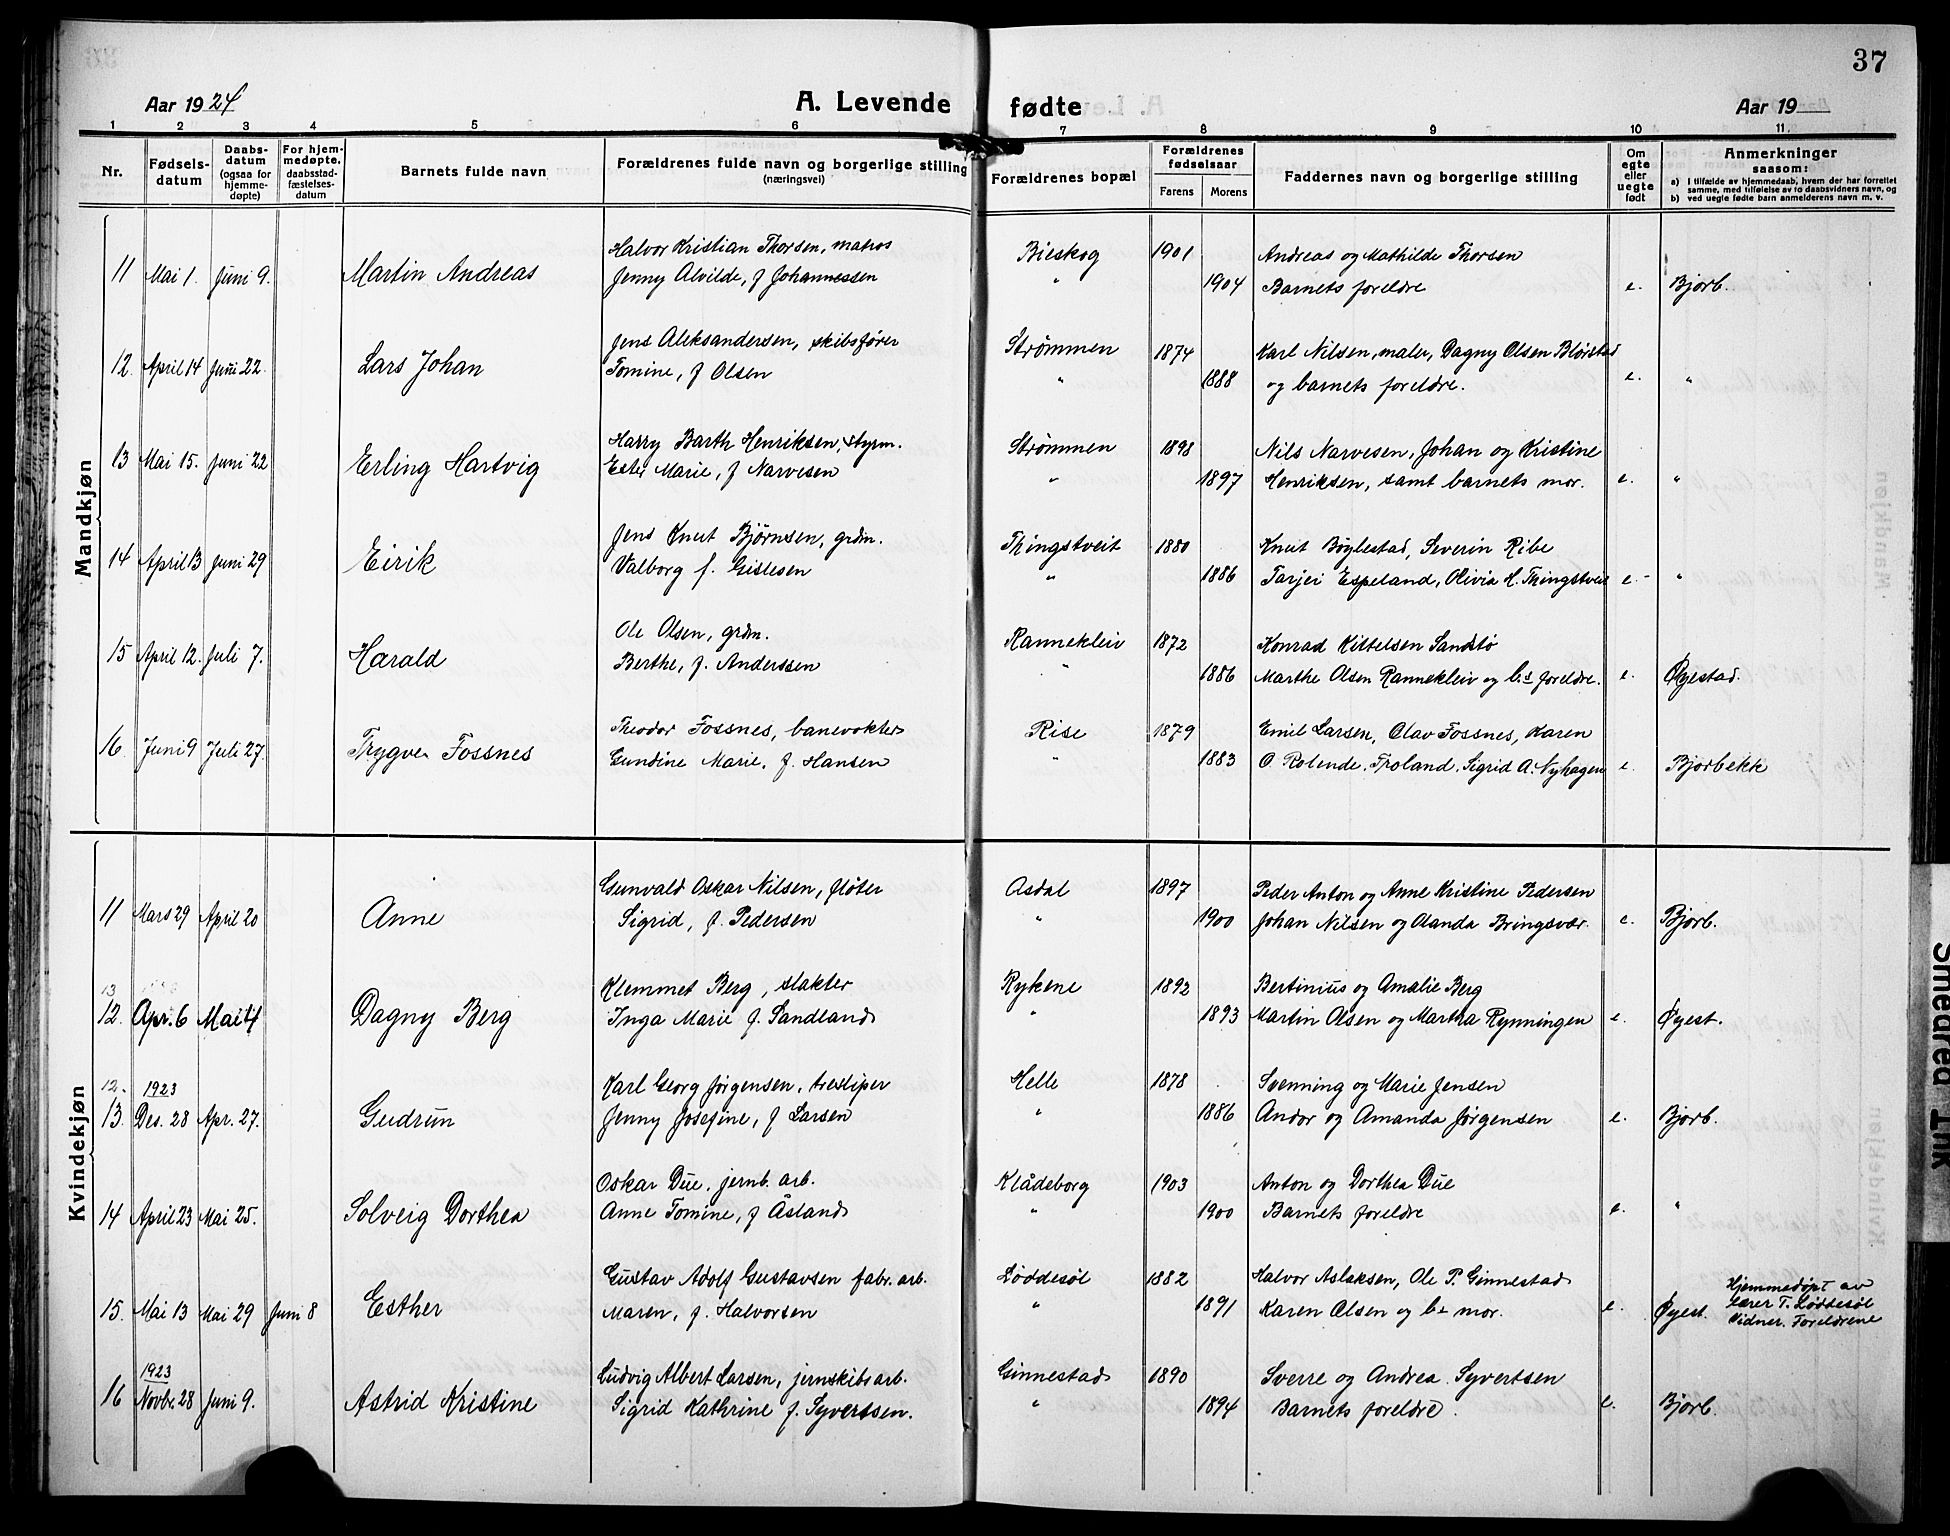 37
Aar 1924 A. Levende fødte Aar 19
1 2 3 4 5 6 7 8 9 10 11.
Nr. Fødselsdatum Daabsdatum (ogsaa for hjemmedøpte) For hjemmedøpte, daabsstadfæstelsesdatum Barnets fulde navn Forældrenes fulde navn og borgerlige stilling (næringsvei) Forældrenes bopæl Forældrenes fødselsaar Farens Morens Faddernes navn og borgerlige stilling Om egte eller uegte født Anmerkninger saasom:
a) I tilfælde av hjemmedaab, hvem der har forrettet samme, med tilføielse av to daabsvidners navn, og
b) ved uegte fødte barn anmelderens navn m. v.
Mandkjøn
Halvor Kristian Thorsen, matros Bieskog 1901 Andreas og Mathilde Thorsen
11 Mai 1. Juni 9. Martin Andreas Jenny Alvilde, f Johannessen " 1904 Barnets foreldre e. Bjorb.
Jens Aleksandersen, skibsfører Strømmen 1874 Karl Nilsen, maler, Dagny Olsen Blørstad
12. April 14 Juni 22. Lars Johan Tomine, f Olsen " 1888 og barnets foreldre. e. "
Harry Barth Henriksen, styrm. Strømmen 1898 Nils Narvesen, Johan og Kristine
13 Mai 15. Juni 22 Erling Hartvig Ester Marie, f Narvesen " 1897 Henriksen, samt barnets mor. e. "
Jens Knut Bjørnsen, grdm. Thingstveit 1880 Knut Bøylestad, Severin Ribe
14 April 13 Juni 29 Eirik Valborg f. Gislesen " 1886 Tarjei Espeland, Olivia H. Thingstveit e. "
Ole Olsen, grdm. Rannekleiv 1872 Konrad Kittelsen Sandstø
15 April 12. Juli 7. Harald Berthe, f. Anderssen " 1886 Marthe Olsen Rannekleiv og b.s foreldre. e. Øyestad.
Theodor Fossnes, banevokter Rise 1879 Emil Larsen, Olav Fossnes, Karen
16. Juni 9 Juli 27. Trygve Fossnes Gundine Marie, f. Hansen " 1883 O. Rolende, Froland, Sigrid A. Nyhagen e. Bjorbekk
Kvindekjøn
Gunvald Oskar Nilsen, fløter Asdal 1897 Peder Anton og Anne Kristine Pedersen
11 Mars 29 April 20 Anne Sigrid, f. Pedersen " 1900 Johan Nilsen og Aanda Bringsvær. e. Bjorb.
13 Klemmet Berg, slakter Rykene 1892 Bertinius og Amalie Berg
12. Apr. 6 Mai 4 Dagny Berg Inga Marie f. Sandland " 1893 Martin Olsen og Martha Rynningen e. Øyest.
12. 1923 Karl Georg Jørgensen, tresliper Helle 1878 Svenning og Marie Jensen
13. Des. 28 Apr. 27. Gudrun Jenny Josefine, f Larsen " 1886 Andor og Amanda Jørgensen e. Bjorb.
Oskar Due, jernb. arb. Klådeborg 1903 Anton og Dorthea Due
14 April 23 Mai 25. Solveig Dorthea Anne Tomine, f Åsland " 1900 Barnets foreldre e. "
Gustav Adolf Gustavsen fabr. arb. Løddesøl 1882 Halvor Aslaksen, Ole P. Ginnestad Hjemmedøpt av
15. Mai 13 Mai 29 Juni 8 Esther Maren, f. Halvorsen " 1891 Karen Olsen og b.s mor. e. Øyest. lærer T. Løddesøl
Vidner. Foreldrene
1923 Ludvig Albert Larsen, jernskibsarb. Ginnestad 1890 Sverre og Andrea Syvertsen
16 Novbr. 28 Juni 9. Astrid Kristine Sigrid Kathrine f. Syvertsen. " 1894 Barnets foreldre. e. Bjorb.
Smeared Ink